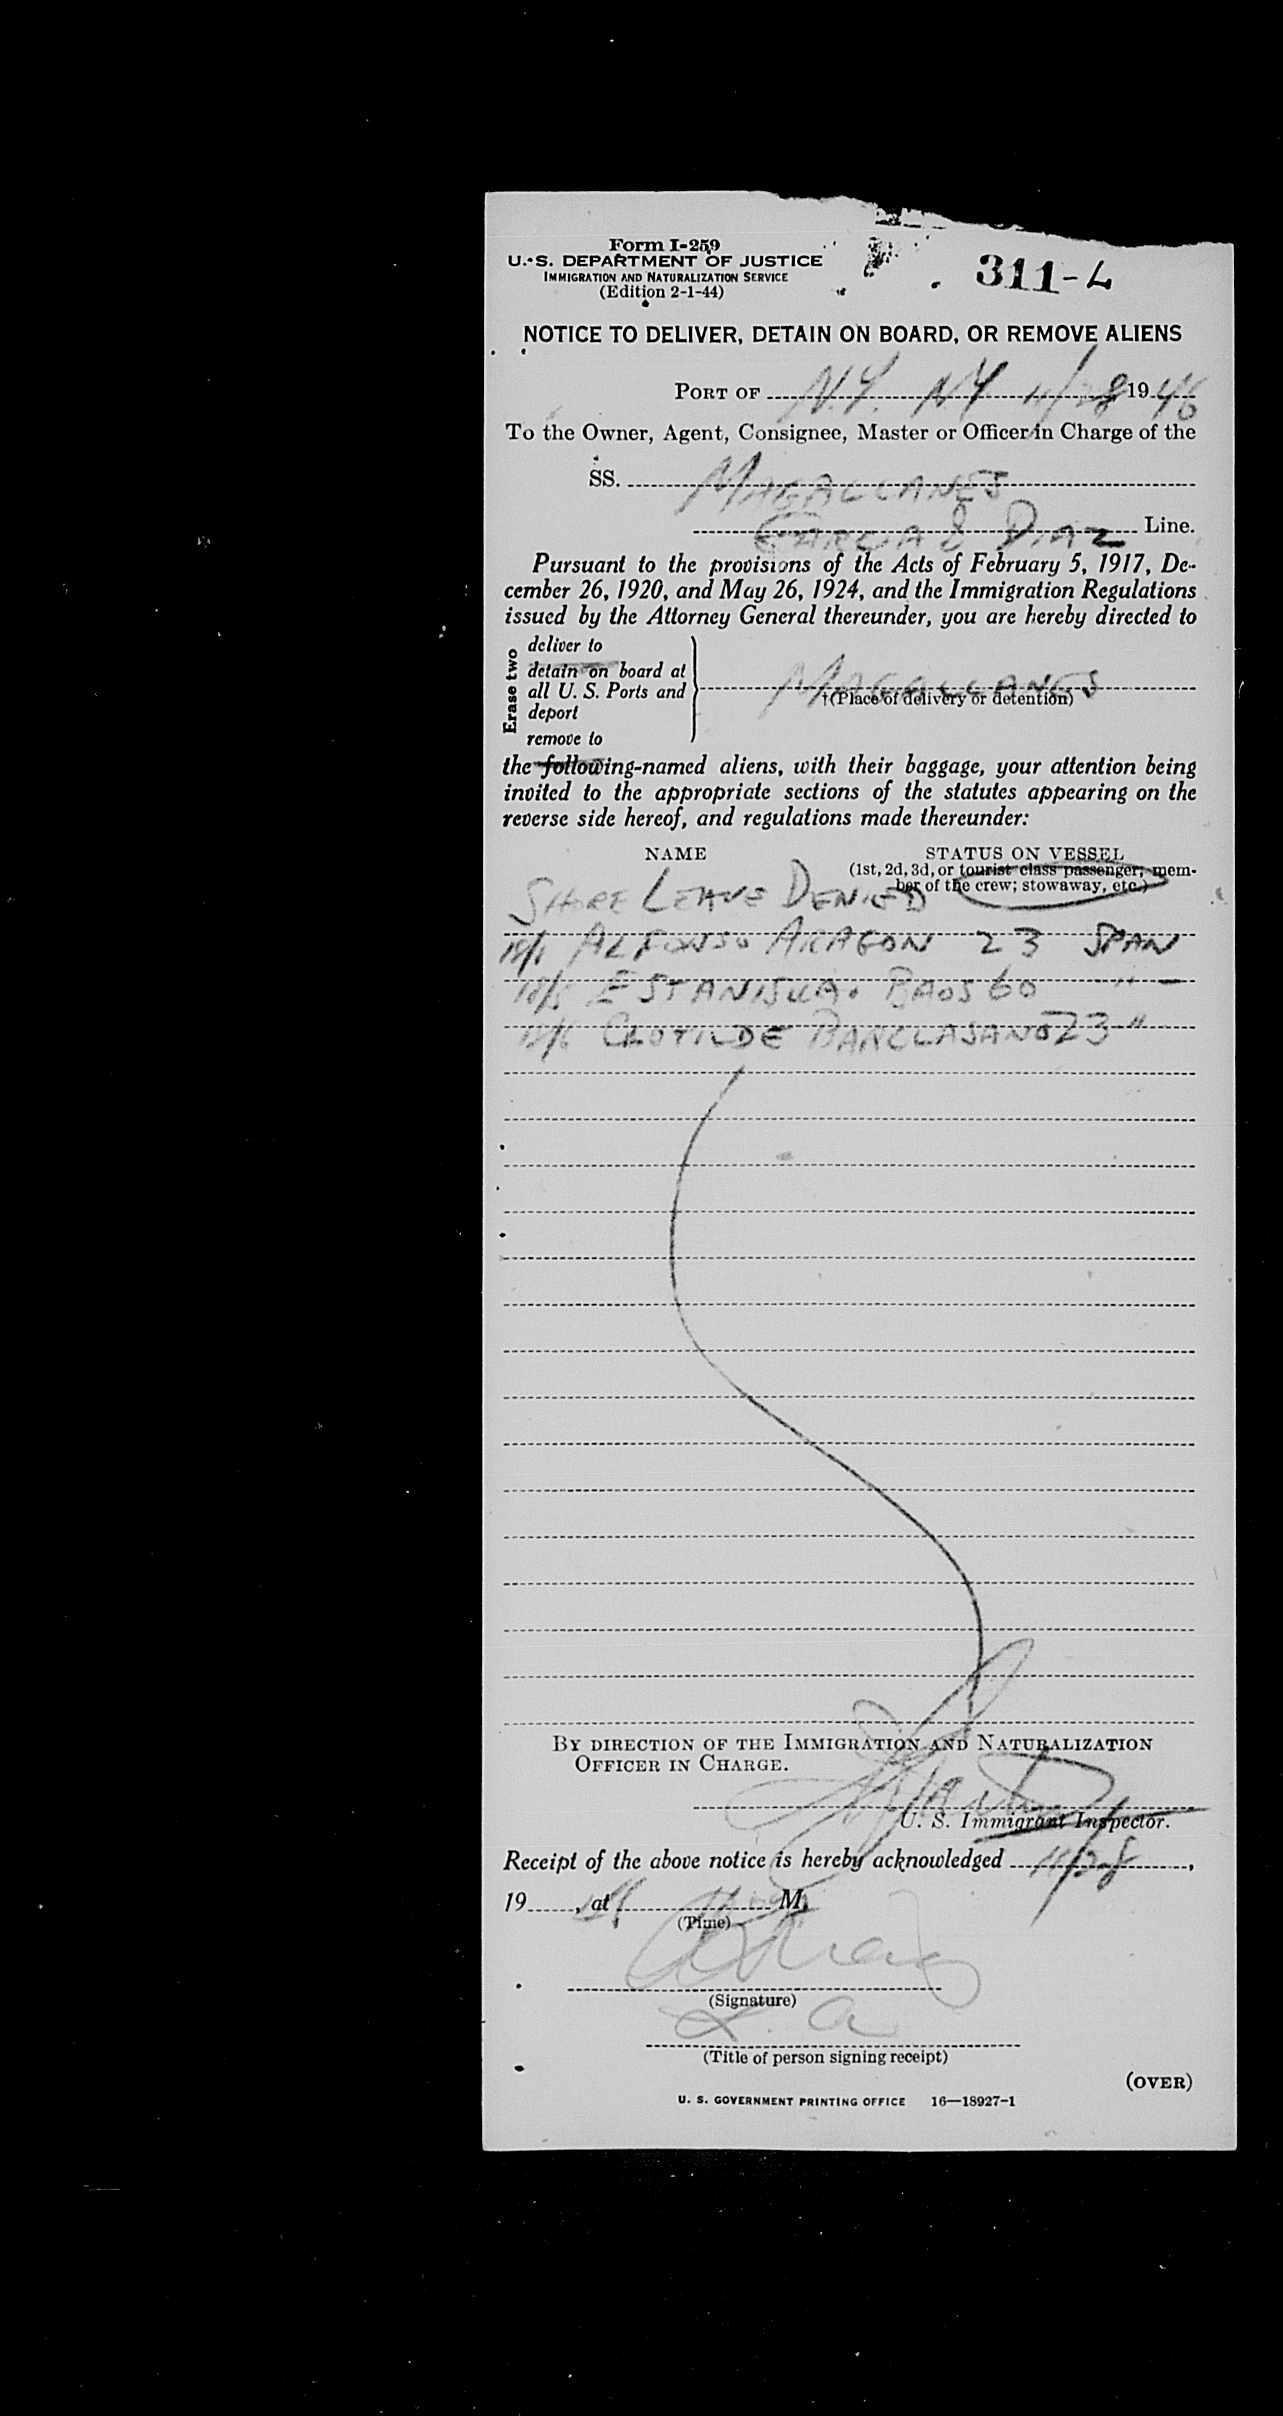 Form I-259
U. S. DEPARTMENT OF JUSTICE
IMMIGRATION AND NATURALIZATION SERVICE
(Edition 2-1-44)
311-L
NOTICE TO DELIVER, DETAIN ON BOARD, OR REMOVE ALIENS
PORT OF N.Y. NY 11/28 1946
To the Owner, Agent, Consignee, Master or Officer in Charge of the
SS. MAGALLANES
GARCIA & DIAZ Line.
Pursuant to the provisions of the Acts of February 5, 1917, De-
cember 26, 1920, and May 26, 1924, and the Immigration Regulations
issued by the Attorney General thereunder, you are hereby directed to
Erase two
deliver to
detain on board at
all U. S. Ports and
deport
remove to
MAGALLANES
†(Place of delivery or detention)
the following-named aliens, with their baggage, your attention being
invited to the appropriate sections of the statutes appearing on the
reverse side hereof, and regulations made thereunder:
NAME STATUS ON VESSEL
(1st, 2d, 3d, or tourist class passenger; mem-
ber of the crew; stowaway, etc.)
SHORE LEAVE DENIED
18/1 ALFONSO ARAGON 23 SPAN
18/5 ESTANISLAO BAOS 60 " -
18/6 CLOTILDE BARCLASANO 23 "
BY DIRECTION OF THE IMMIGRATION AND NATURALIZATION
OFFICER IN CHARGE.
U. S. Immigrant Inspector.
Receipt of the above notice is hereby acknowledged 11/28,
19 , at M.
(Time)
(Signature)
(Title of person signing receipt)
(OVER)
U. S. GOVERNMENT PRINTING OFFICE 16—18927-1